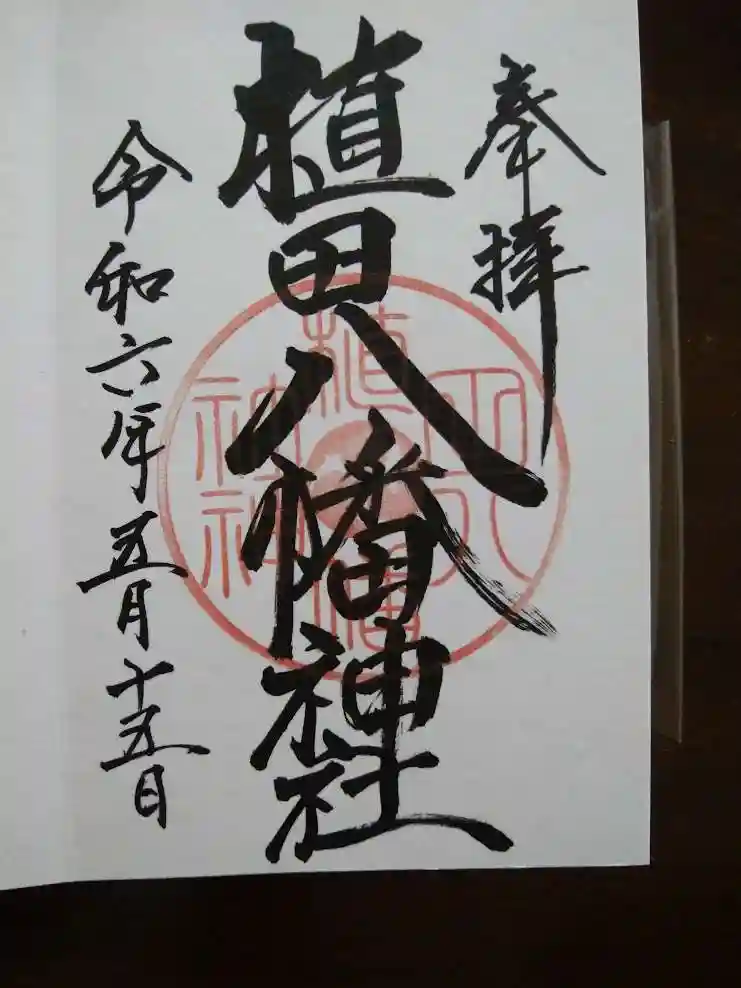 奉拝
植田八幡神社
令和六年五月十五日
植田八幡神社